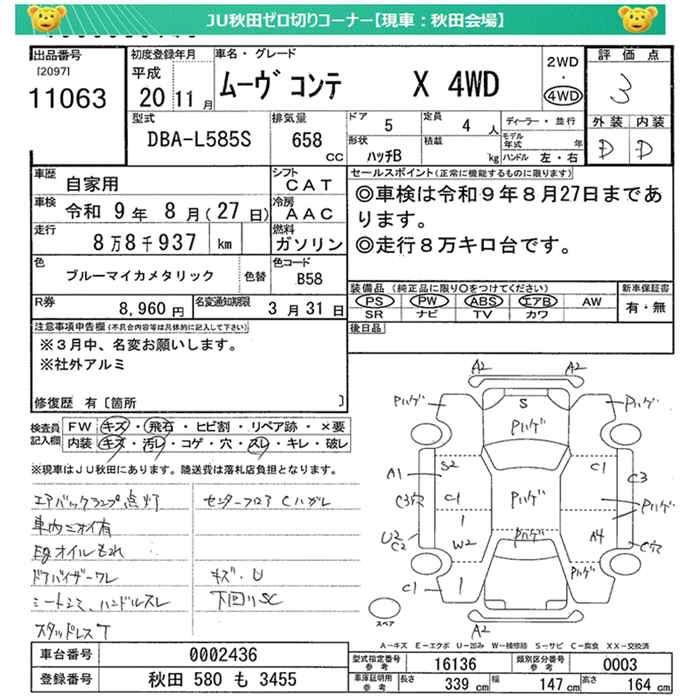 JU秋田ゼロ切りコーナー【現車：秋田会場】
出品番号
[2097]
11063
初度登録年月
平成
20 11月
車名・グレード
ムーヴ コンテ X 4WD
2WD
・
4WD
評価点
3
外装 内装
D D
型式
DBA-L585S
排気量
658
CC
ドア
5
定員
4 人
形状
ハッチB
積載
kg
ディーラー・並行
モデル年式 年
ハンドル 左・右
車歴
自家用
シフト
CAT
車検
令和 9年 8月(27日)
冷房
AAC
走行
8万8千937 km
燃料
ガソリン
色
ブルーマイカメタリック
色替
色コード
B58
R券
8,960円
名変通知期限
3月31日
セールスポイント(正常に機能するものに限ります)
◎車検は令和9年8月27日まであ
ります。
◎走行8万キロ台です。
装備品(純正品に限り○をつけてください)
PS PW ABS エアB AW
SR ナビ TV カワ
新車保証書
有・無
後日品
注意事項申告欄(不具合内容等は具体的に記入して下さい)
※3月中、名変お願いします。
※社外アルミ
修復歴 有[箇所 ]
検査員
記入欄
FW キズ・飛石・ヒビ割・リペア跡・×要
内装 キズ・汚レ・コゲ・穴・スレ・キレ・破レ
※現車はJU秋田にあります。陸送費は落札店負担となります。
エアバックランプ点灯
車内ニオイ有
Egオイルもれ
ドアバイザーワレ
シートコゲ、ハンドルスレ
スタッドレスT
センターフロアCハガレ
キズ・U
下回りSC
A2 A2
Pハゲ S Pハゲ
Pハゲ
A1 S2 C1 C3
C3穴 C1 Pハゲ Pハゲ
1
U2 C2 W2 Pハゲ A4 C穴
Pハゲ
C1 1
A2
スペア
A-キズ E-エクボ U-凹み W-補修跡 S-サビ C-腐食 XX-交換済
車台番号 0002436
登録番号 秋田 580 も 3455
型式指定番号
参考
16136
類別区分番号
参考
0003
車庫証明用
参考
長さ 339 cm 幅 147 cm 高さ 164 cm